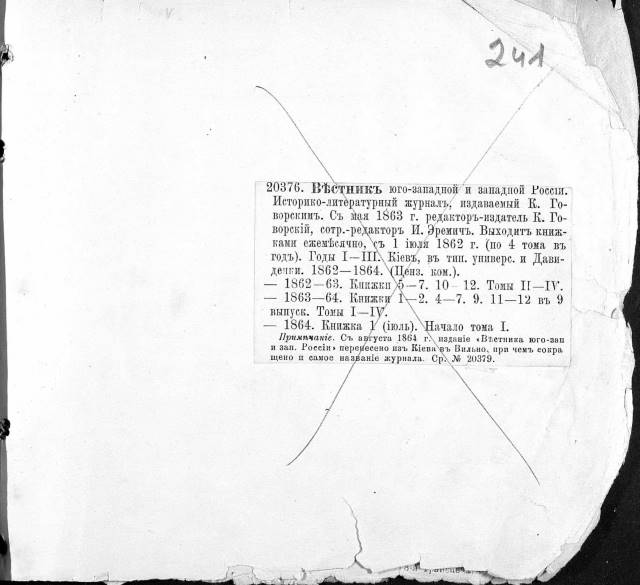 241
20376. Вѣстникъ юго-западной и западной Россіи.
Историко-литературный журналъ, издаваемый К. Го-
ворскимъ. Съ мая 1863 г. редакторъ-издатель К. Го-
ворскій, сотр.-редакторъ И. Эремичъ. Выходитъ книж-
ками ежемѣсячно, съ 1 іюля 1862 г. (по 4 тома въ
годъ). Годы I—III. Кіевъ, въ тип. универс. и Дави-
денки. 1862—1864. (Ценз. ком.).
— 1862—63. Книжки 5—7. 10—12. Томы II—IV.
— 1863—64. Книжки 1—2. 4—7. 9. 11—12 въ 9
выпуск. Томы I—IV.
— 1864. Книжка 1 (іюль). Начало тома I.
Примѣчаніе. Съ августа 1864 г. изданіе «Вѣстника юго-зап
и зап. Россіи» перенесено изъ Кіева въ Вильно, при чемъ сокра
щено и самое названіе журнала. Ср. № 20379.